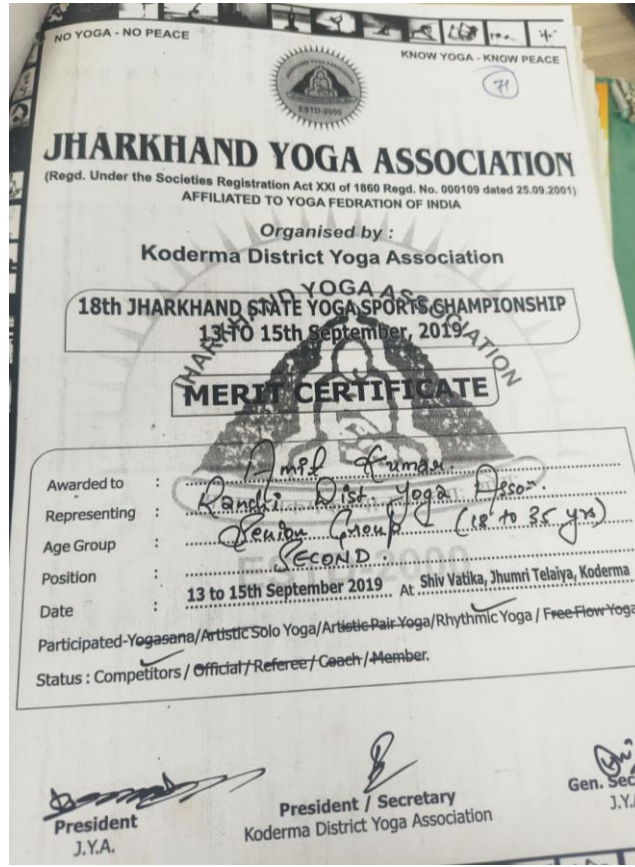 NO YOGA - NO PEACE
KNOW YOGA - KNOW PEACE
71
ESTD-2000
JHARKHAND YOGA ASSOCIATION
(Regd. Under the Societies Registration Act XXI of 1860 Regd. No. 000109 dated 25.09.2001)
AFFILIATED TO YOGA FEDRATION OF INDIA
Organised by :
Koderma District Yoga Association
JHARKHAND YOGA ASSOCIATION
18th JHARKHAND STATE YOGA SPORTS CHAMPIONSHIP
13 TO 15th September, 2019
MERIT CERTIFICATE
Awarded to : Amit Kumar.
Representing : Ranchi Dist. Yoga Asson.
Age Group : Senior Group (18 to 35 yrs)
Position : SECOND.
ESTD-2000
Date : 13 to 15th September 2019 At Shiv Vatika, Jhumri Telaiya, Koderma
Participated-Yogasana/Artistic Solo Yoga/Artistic Pair Yoga/Rhythmic Yoga / Free Flow Yoga
Status : Competitors / Official / Referee / Coach / Member.
President
J.Y.A.
President / Secretary
Koderma District Yoga Association
Gen. Sec
J.Y.A